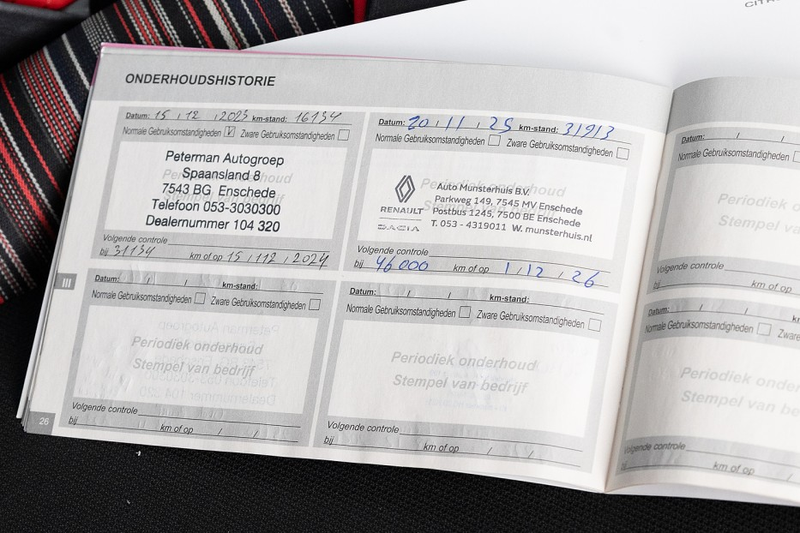 CIT
ONDERHOUDSHISTORIE
Datum: 15 / 12 / 2023 km-stand: 16134
Normale Gebruiksomstandigheden V Zware Gebruiksomstandigheden
Peterman Autogroep
Spaansland 8
7543 BG Enschede
Telefoon 053-3030300
Dealernummer 104 320
Volgende controle
bij 31134 km of op 15 / 12 / 2024
Datum: 20 / 11 / 25 km-stand: 31913
Normale Gebruiksomstandigheden Zware Gebruiksomstandigheden
RENAULT
DACIA
Auto Munsterhuis B.V.
Parkweg 149, 7545 MV Enschede
Postbus 1245, 7500 BE Enschede
T. 053 - 4319011 W. munsterhuis.nl
Volgende controle
bij 46000 km of op 1 / 12 / 26
Datum: / / km-stand:
Normale Gebruiksomstandigheden Zware Gebruiksomstandigheden
Periodiek onderhoud
Stempel van bedrijf
Volgende controle
bij km of op / /
Datum: / / km-stand:
Normale Gebruiksomstandigheden Zware Gebruiksomstandigheden
Periodiek onderhoud
Stempel van bedrijf
Volgende controle
bij km of op / /
III
26
Datum: / /
Normale Gebruiksomstandigheden
Periodiek onder
Stempel van be
Volgende controle
bij km of op /
Datum: / /
Normale Gebruiksomstandigheden
Periodiek onder
Stempel van be
Volgende controle
bij km of op /